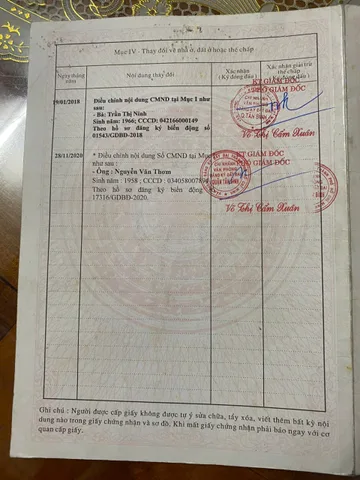 Mục IV - Thay đổi về nhà ở, đất ở hoặc thế chấp
Ngày tháng năm
Nội dung thay đổi
Xác nhận
(Ký đóng dấu)
Xác nhận giải trừ
thế chấp
KT GIÁM ĐỐC
PHÓ GIÁM ĐỐC
19/01/2018
Điều chỉnh nội dung CMND tại Mục 1 như
sau:
- Bà: Trần Thị Ninh
Sinh năm: 1966; CCCD: 042166000149
Theo hồ sơ đăng ký biến động số
01543/GDBĐ-2018
Q.TÂN BÌNH
Võ Thị Cẩm Xuân
28/11/2020
* Điều chỉnh nội dung Số CMND tại Mục
như sau :
- Ông : Nguyễn Văn Thơm
Sinh năm : 1958 ; CCCD : 03405800789
Theo hồ sơ đăng ký biến động
17316/GDBĐ-2020.
KT GIÁM ĐỐC
PHÓ GIÁM ĐỐC
CHI NHÁNH
VĂN PHÒNG
ĐĂNG KÝ ĐẤT ĐAI
QUẬN TÂN BÌNH
Võ Thị Cẩm Xuân
Ghi chú : Người được cấp giấy không được tự ý sửa chữa, tẩy xóa, viết thêm bất kỳ nội
dung nào trong giấy chứng nhận và sơ đồ; Khi mất giấy chứng nhận phải báo ngay với cơ
quan cấp giấy.